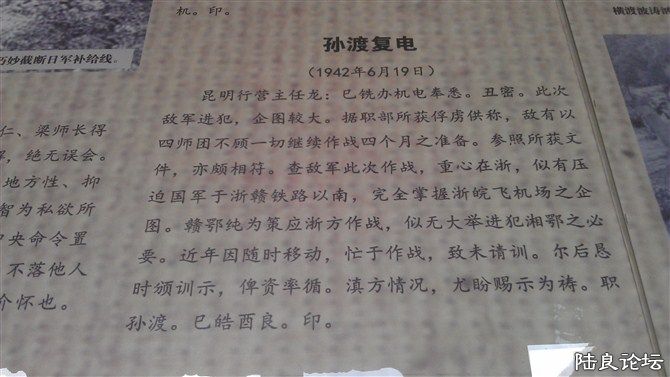 机。印。
巧妙截断日军补给线。
孙渡复电
（1942年6月19日）
昆明行营主任龙：巳铣办机电奉悉。丑密。此次
敌军进犯，企图较大。据职部所获俘虏供称，敌有以
四师团不顾一切继续作战四个月之准备。参照所获文
件，亦颇相符。查敌军此次作战，重心在浙，似有压
迫国军于浙赣铁路以南，完全掌握浙皖飞机场之企
图。赣鄂纯为策应浙方作战，似无大举进犯湘鄂之必
要。近年因随时移动，忙于作战，致未请训。尔后恳
时颁训示，俾资率循。滇方情况，尤盼赐示为祷。职
孙渡。巳皓酉良。印。
仁、梁师长得
，绝无误会。
地方性、抑
智为私欲所
中央命令置
不落他人
介怀也。
横渡波涛
陆良论坛